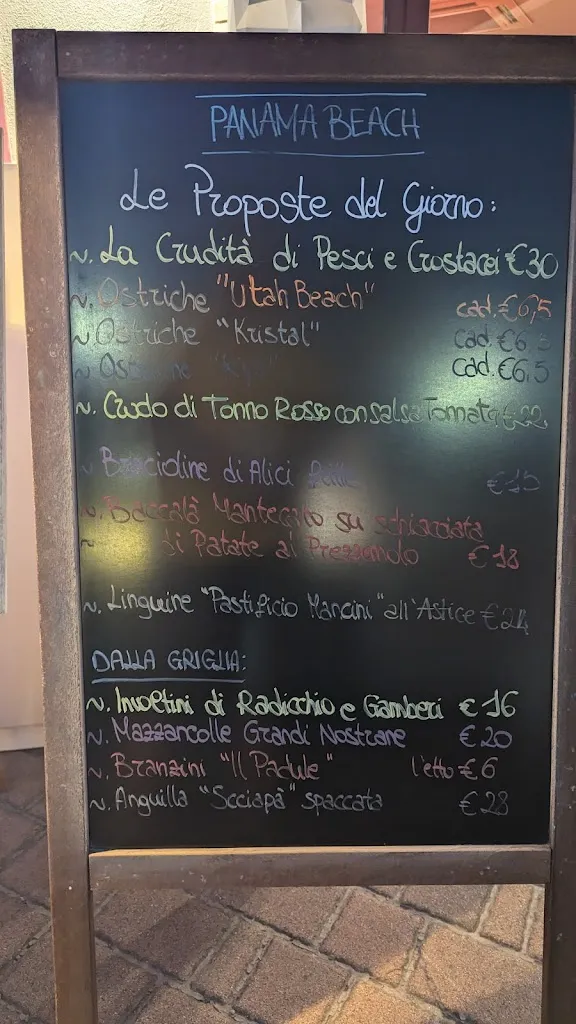 PANAMA BEACH
Le Proposte del Giorno:
~. La Crudità di Pesci e Crostacei €30
~. Ostriche "Utah Beach" cad. €6,5
~. Ostriche "Kristal" cad €6,5
Ostriche cad. €6,5
~. Crudo di Tonno Rosso con salsa Tomata €22
Bracioline di Alici fritte €15
~. Baccalà Mantecato su schiacciata
~ di Patate al Prezzemolo €18
~. Linguine "Pastificio Mancini" all'Astice €24
DALLA GRIGLIA:
~. Involtini di Radicchio e Gamberi €16
~. Mazzancolle Grandi Nostrane €20
~. Branzini "Il Padule" l'etto €6
~. Anguilla "Scciapà" spaccata €28